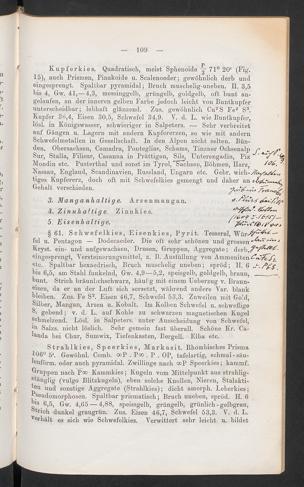 — 109 —
Kupferkies. Quadratisch, meist Sphenoide P/2 71° 20' (Fig.
15), auch Prismen, Pinakoide u. Scalenoeder; gewöhnlich derb und
eingesprengt. Spaltbar pyramidal; Bruch muschelig-uneben. H. 3,5
bis 4, Gw. 41,—4,3, messinggelb, grüngelb, goldgelb, oft bunt an-
gelaufen, an der inneren gelben Farbe jedoch leicht von Buntkupfer
unterscheidbar; lebhaft glänzend. Zus. gewöhnlich Cu²S Fe² S³.
Kupfer 34,4, Eisen 30,5, Schwefel 34,9. V. d. L. wie Buntkupfer,
lösl. in Königswasser, schwieriger in Salpeters. — Sehr verbreitet
auf Gängen u. Lagern mit andern Kupfererzen, so wie mit andern
Schwefelmetallen in Gesellschaft. In den Alpen nicht selten. Bün-
den, Obersachsen, Canadra, Puntegliss, Schams, Tinzner Ochsenalp
Sur, Stalla, Filisur, Casanna in Prättigau, Sils, Unterengadin, Piz
Mondin etc. Unterthal und sonst im Tyrol, Sachsen, Böhmen, Harz,
Nassau, England, Scandinavien, Russland, Ungarn etc. Sehr wich-
tiges Kupfererz, doch oft mit Schwefelkies gemengt und daher an
Gehalt verschieden.
3. Manganhaltige. Arsenmangan.
4. Zinnhaltige. Zinnkies.
5. Eisenhaltige.
§ 61. Schwefelkies, Eisenkies, Pyrit. Tesseral, Wür-
fel u. Pentagon — Dodecaeder. Die oft sehr schönen und grossen
Kryst. ein- und aufgewachsen, Drusen, Gruppen, Aggregate; derb,
eingesprengt, Versteinerungsmittel, z. B. Ausfüllung von Ammoniten
etc. Spaltbar hexaedrisch, Bruch muschelig uneben; spröd, H. 6
bis 6,5, am Stahl funkelnd, Gw. 4,9—5,2, speisgelb, goldgelb, braun,
bunt. Strich bräunlichschwarz, häufig mit einem Ueberzug v. Braun-
eisen, da er an der Luft sich zersetzt, während andere Var. blank
bleiben. Zus. Fe S². Eisen 46,7, Schwefel 53,3. Zuweilen mit Gold,
Silber, Mangan, Arsen u. Kobalt. Im Kolben Schwefel u. schweflige
S. gebend; v. d. L. auf Kohle zu schwarzem magnetischen Kugel
schmelzend. Lösl. in Salpeters. unter Ausscheidung von Schwefel,
in Salzs. nicht löslich. Sehr gemein fast überall. Schöne Kr. Ca-
landa bei Chur, Sumvix, Tiefenkasten, Bergell. Elba etc.
Strahlkies, Speerkies, Markasit. Rhombisches Prisma
106° 5'. Gewöhnl. Comb. ∞P . P∞ . P . OP, tafelartig, schmal-säu-
lenförm. oder auch pyramidal. Zwillinge nach ∞P Speerkies; kammf.
Gruppen nach P∞ Kammkies; Kugeln vom Mittelpunkt aus strahlig-
stänglig (vulgo Blitzkugeln), eben solche Knollen, Nieren, Stalakti-
ten und sonstige Aggregate (Strahlkies); dicht amorph. Leberkies;
Pseudomorphosen. Spaltbar prismatisch; Bruch uneben, spröd. H. 6
bis 6,5, Gw. 4,65—4,88, speisgelb, grüngelb, grünlich-gelbgrau,
Strich dunkel graugrün. Zus. Eisen 46,7, Schwefel 53,3. V. d. L.
verhält es sich wie Schwefelkies. Verwittert sehr leicht u. bildet